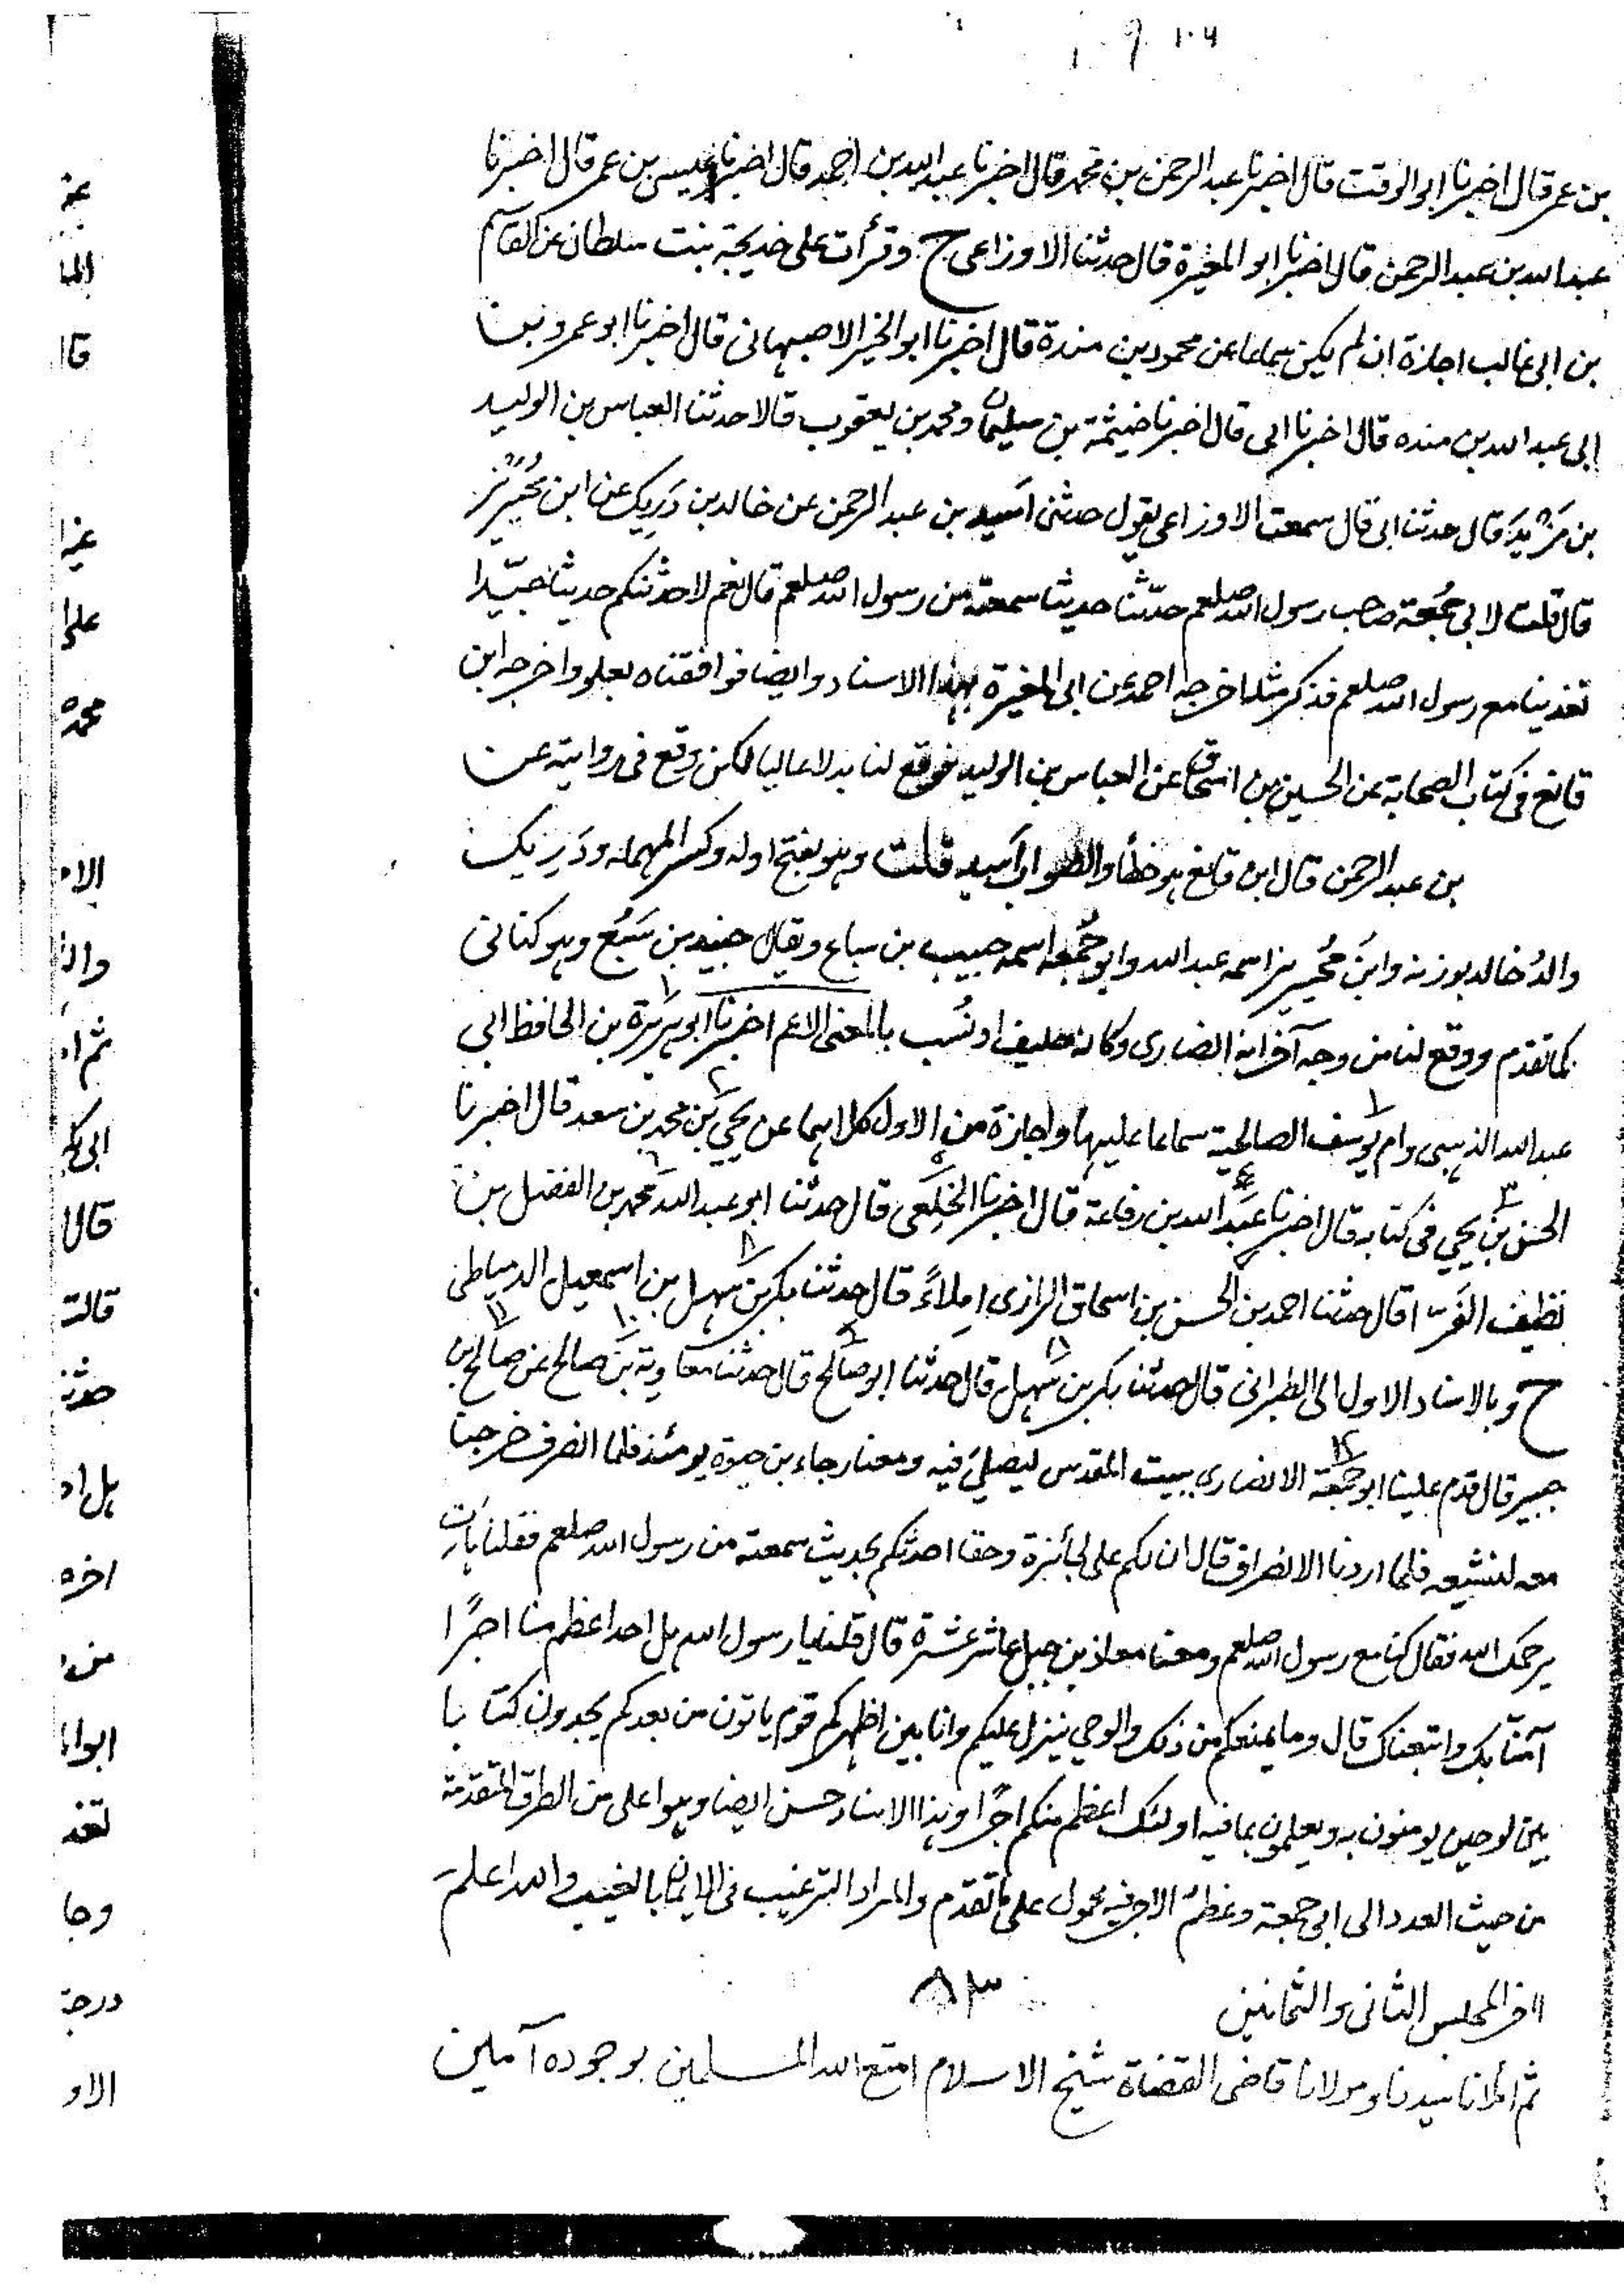 ١٠٤
بن عمر قال اخبرنا ابو الوقت قال اخبرنا عبد الرحمن بن محمد قال اخبرنا عبد الله بن احمد قال اخبرنا عيسى بن عمر قال اخبرنا
عبد الله بن عبد الرحمن قال اخبرنا ابو المغيرة قال حدثنا الاوزاعى ح وقرأت على خديجة بنت سلطان عن القاسم
بن ابى غالب اجازة ان لم يكن سماعا عن محمود بن مندة قال اخبرنا ابو الخير الاصبهانى قال اخبرنا ابو عمرو بن
ابى عبد الله بن منده قال اخبرنا ابى قال اخبرنا خيثمة بن سليمان ومحمد بن يعقوب قالا حدثنا العباس بن الوليد
بن مَزْيَدَ قال حدثنا ابى قال سمعت الاوزاعى يقول حدثنى اَسيد بن عبد الرحمن عن خالد بن دَرَيك عن ابن مُحَيْرِيْز
قال قلت لابى جُمُعة صاحب رسول الله صلعم حدّثنا حديثا سمعته من رسول الله صلعم قال نعم لاحدثنكم حديثا جيّدا
تغدينا مع رسول الله صلعم فذكر مثله اخرجه احمد عن ابى المغيرة بهذا الاسناد وايضا فوافقناه بعلو واخرجه ابن
قانع فى كتاب الصحابة عن الحسين بن اسحاق عن العباس بن الوليد فوقع لنا بدلا عاليا لكن وقع فى روايته عن
بن عبد الرحمن قال ابن قانع هو خطأ والصواب اَسيد قلت وهو بفتح اوله وكسر المهملة ودَرِيك
والدُ خالد بوزنه وابن مُحَيرِيز اسمه عبد الله وابو جُمُعه اسمه حبيب بن سباع ويقال جنيد بن سَبُع وهو كنانى
كما تقدم ووقع لنا من وجه آخر انه انصارى وكانه حليف او نُسب بالمعنى الاعم اخبرنا ابو هريرة بن الحافظ ابى
عبد الله الذهبى وام يوسف الصالحية سماعا عليها واجازة من الاول كلاهما عن يحيى بن محمد بن سعد قال اخبرنا
الحسن بن يحيى فى كتابه قال اخبرنا عبد الله بن رفاعة قال اخبرنا الخِلَعى قال حدثنا ابو عبد الله محمد بن الفضل بن
نظيف الفَرّاء قال حدثنا احمد بن الحسن بن اسحاق الرازى املاءً قال حدثنا بكر بن سهل بن اسمعيل الدمياطى
ح وبالاسناد الاول الى الطبرانى قال حدثنا بكر بن سهل قال حدثنا ابو صالح قال حدثنا معاوية بن صالح عن صالح بن
جبير قال قدم علينا ابو جمعة الانصارى ببيت المقدس ليصلىَ فيه ومعنا رجاء بن حيوة يومئذ فلما انصرف خرجنا
معه لنشيعه فلما اردنا الانصراف قال ان لكم على لجائزة وحقا احدثكم بحديث سمعته من رسول الله صلعم فقلنا هات
يرحمك الله فقال كنا مع رسول الله صلعم ومعنا معاذ بن جبل عاشر عشرة قال قلنا يا رسول الله هل احد اعظم منا اجرًا
آمنّا بك واتبعناك قال وما يمنعكم من ذلك والوحى ينزل عليكم وانا بين اظهركم قوم ياتون من بعدكم يجدون كتابا
بين لوحين يومنون به ويعملون بما فيه اولئك اعظم منكم اجرًا وهذا الاسناد حسن ايضا وهو اعلى من الطرق المتقدمة
من حيث العدد الى ابى جمعة وعظم الاجر فيه محمول على ما تقدم والمراد الترغيب فى الايمان بالغيب والله اعلم
آخر المجلس الثانى والثمانين
٨٣
ثم املانا سيدنا ومولانا قاضى القضاة شيخ الاسلام امتع الله المسلمين بوجوده آمين